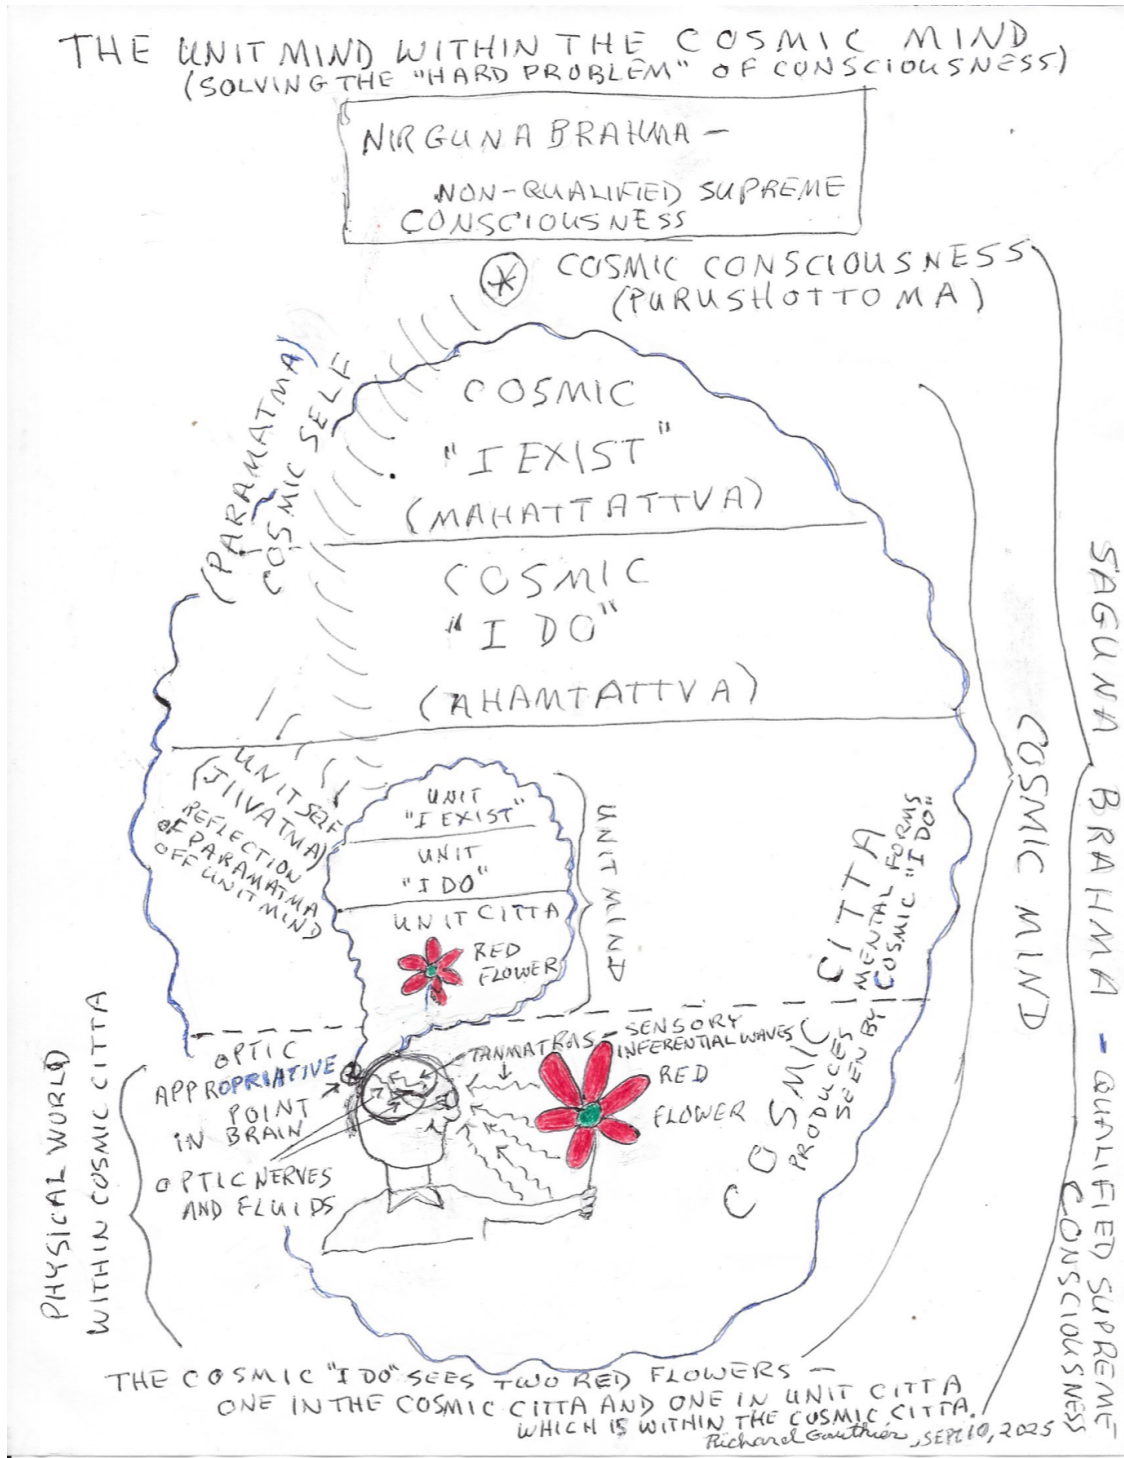 THE UNIT MIND WITHIN THE COSMIC MIND
(SOLVING THE "HARD PROBLEM" OF CONSCIOUSNESS)
NIRGUNA BRAHMA —
NON-QUALIFIED SUPREME
CONSCIOUSNESS
COSMIC CONSCIOUSNESS
(PURUSHOTTOMA)
(PARAMATMA)
COSMIC SELF
COSMIC
"I EXIST"
(MAHATTATTVA)
COSMIC
"I DO"
(AHAMTATTVA)
UNIT SELF
(JIIVATMA)
REFLECTION
OF PARAMATMA
OFF UNIT MIND
UNIT
"I EXIST"
UNIT
"I DO"
UNIT CITTA
RED
FLOWER
UNIT MIND
COSMIC CITTA
PRODUCES MENTAL FORMS
SEEN BY COSMIC "I DO"
COSMIC MIND
SAGUNA BRAHMA - QUALIFIED SUPREME
CONSCIOUSNESS
OPTIC
APPROPRIATIVE
POINT
IN BRAIN
OPTIC NERVES
AND FLUIDS
TANMATRAS - SENSORY
INFERENTIAL WAVES
RED
FLOWER
PHYSICAL WORLD
WITHIN COSMIC CITTA
THE COSMIC "I DO" SEES TWO RED FLOWERS —
ONE IN THE COSMIC CITTA AND ONE IN UNIT CITTA
WHICH IS WITHIN THE COSMIC CITTA.
Richard Gauthier, SEPT 10, 2025